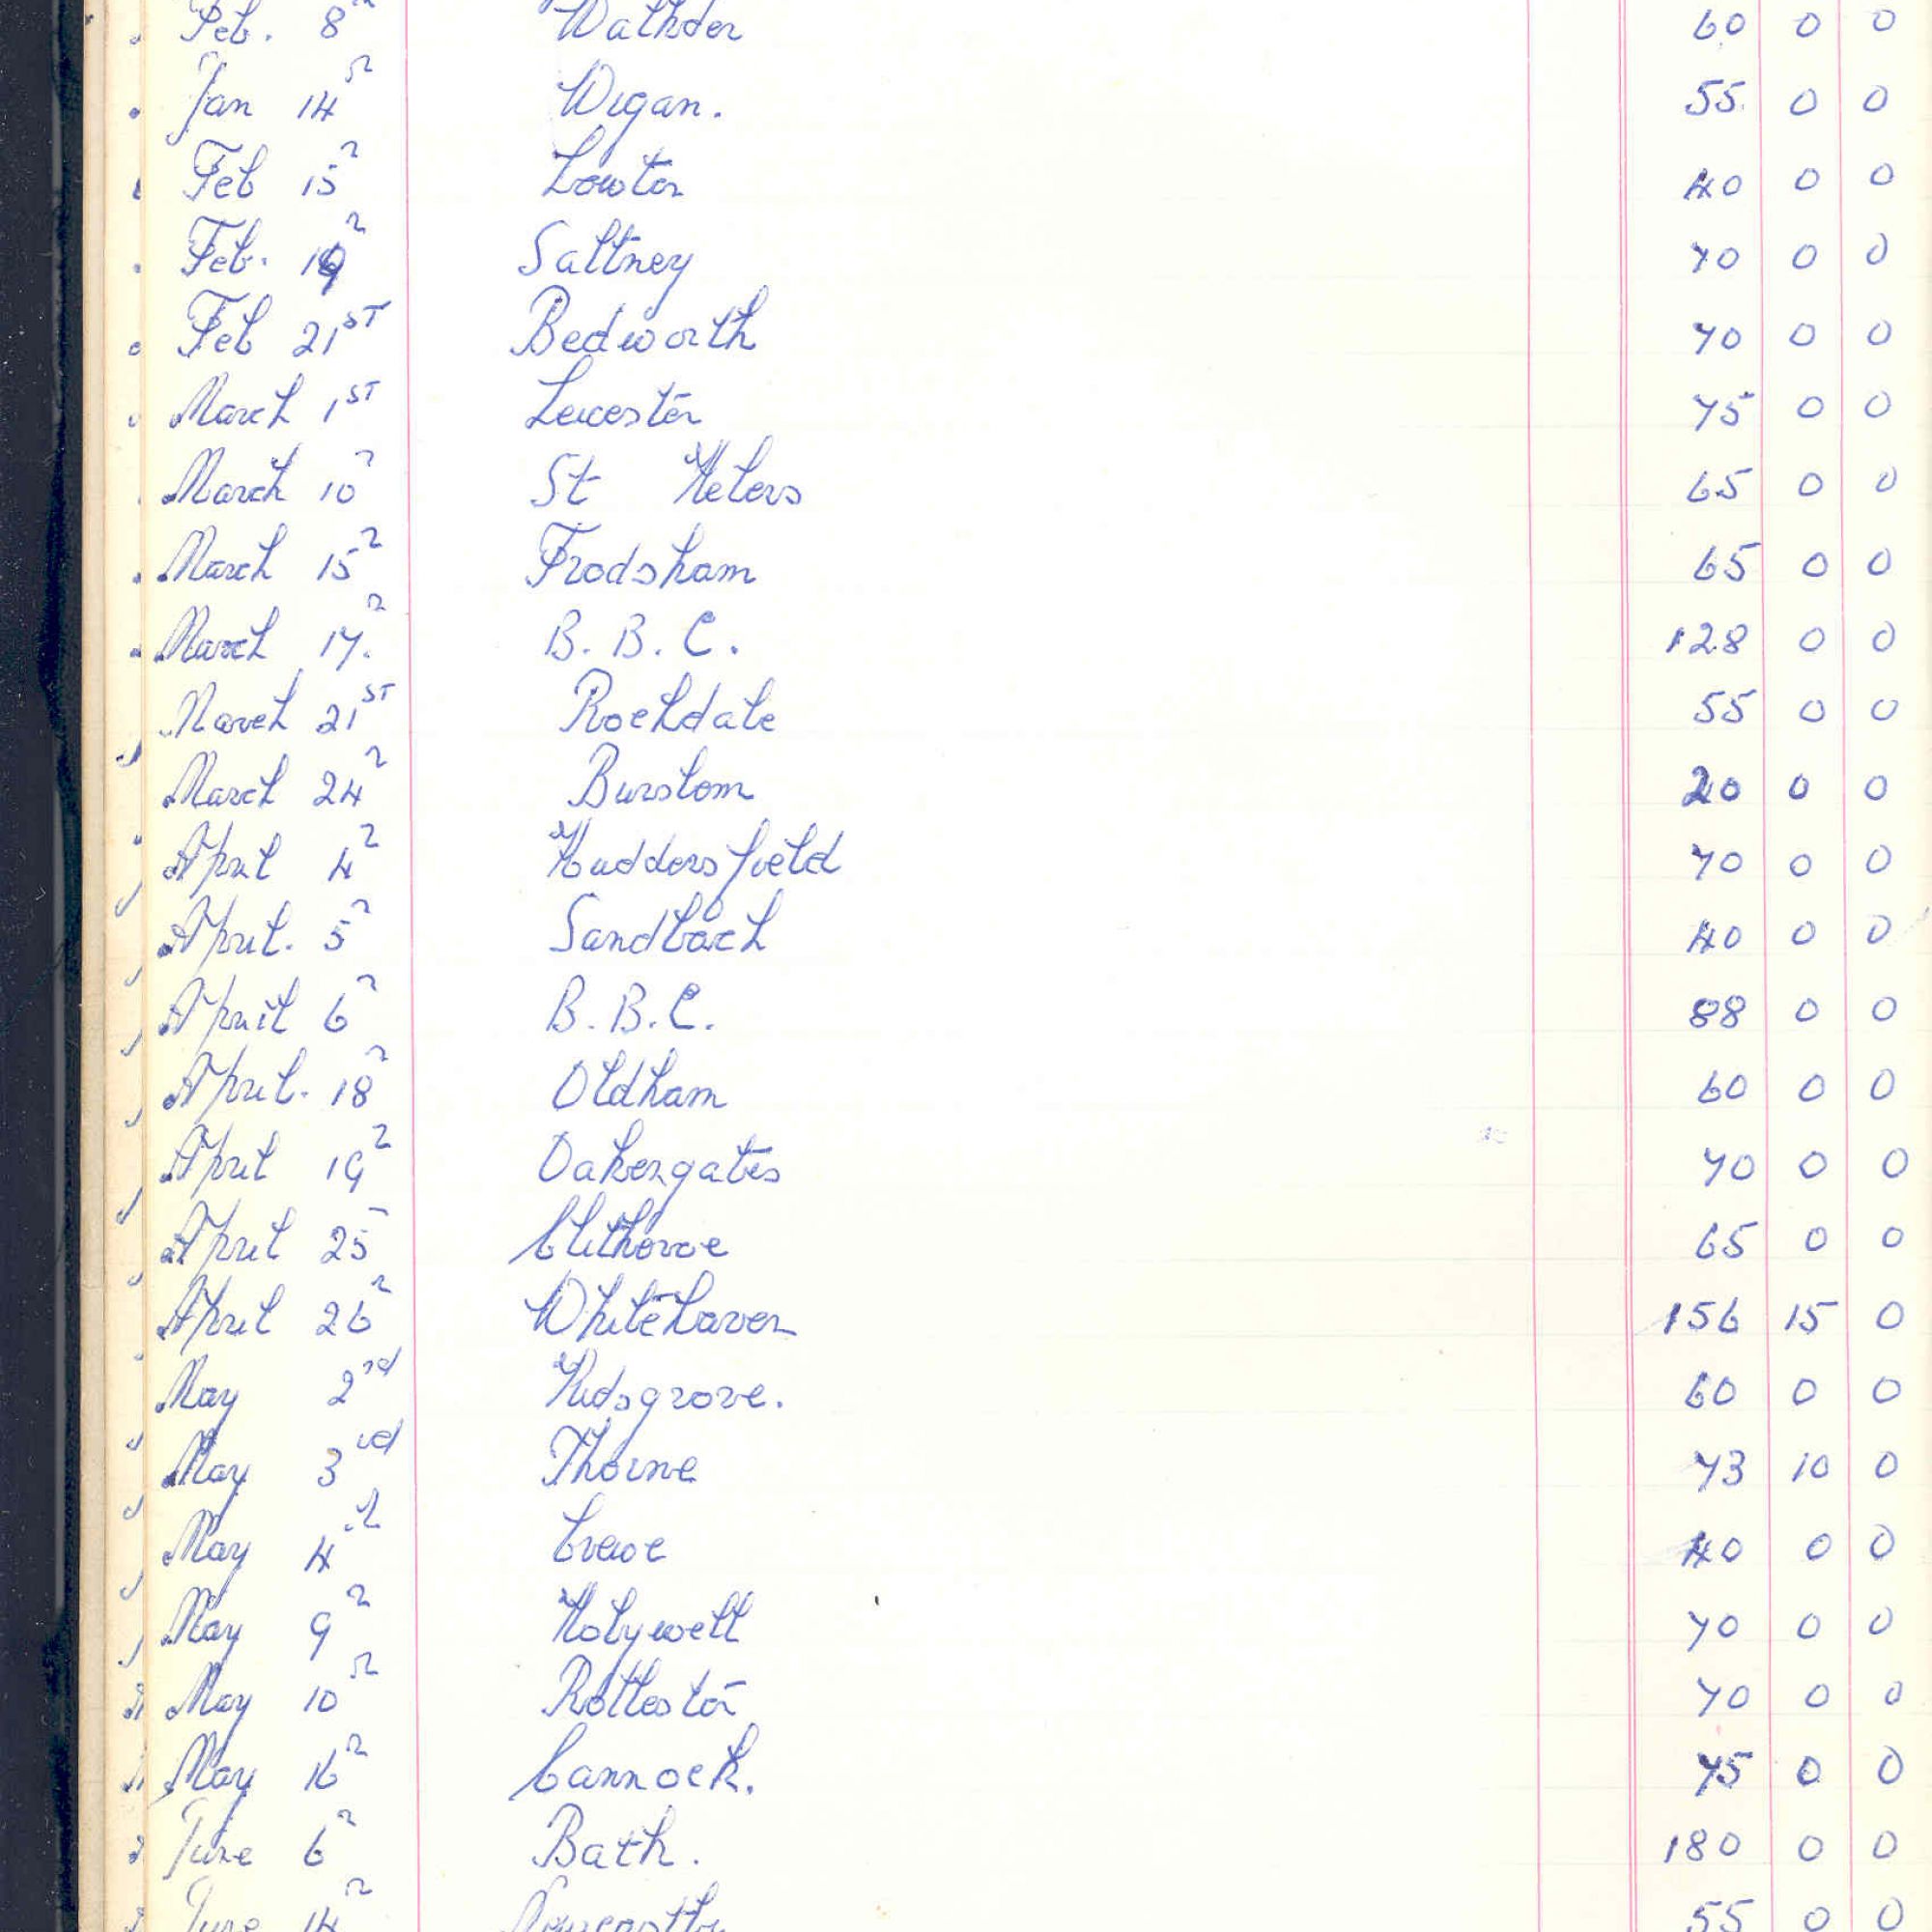 Feb. 8 Walkden 60 0 0
Jan 14 Wigan. 55 0 0
Feb 15 Lowton 40 0 0
Feb. 19 Saltney 70 0 0
Feb 21ST Bedworth 70 0 0
March 1ST Leicester 75 0 0
March 10 St Helens 65 0 0
March 15 Frodsham 65 0 0
March 17. B. B. C. 128 0 0
March 21ST Rochdale 55 0 0
March 24 Burslem 20 0 0
April 4 Huddersfield 70 0 0
April. 5 Sandbach 40 0 0
April 6 B. B. C. 88 0 0
April. 18 Oldham 60 0 0
April 19 Oakengates 70 0 0
April 25 Clitheroe 65 0 0
April 26 Whitehaven 156 15 0
May 2nd Kidsgrove. 60 0 0
May 3rd Thorne 73 10 0
May 4 Crewe 40 0 0
May 9 Holywell 70 0 0
May 10 Rolleston 70 0 0
May 16 Cannock. 75 0 0
June 6 Bath. 180 0 0
June 14 55 0 0